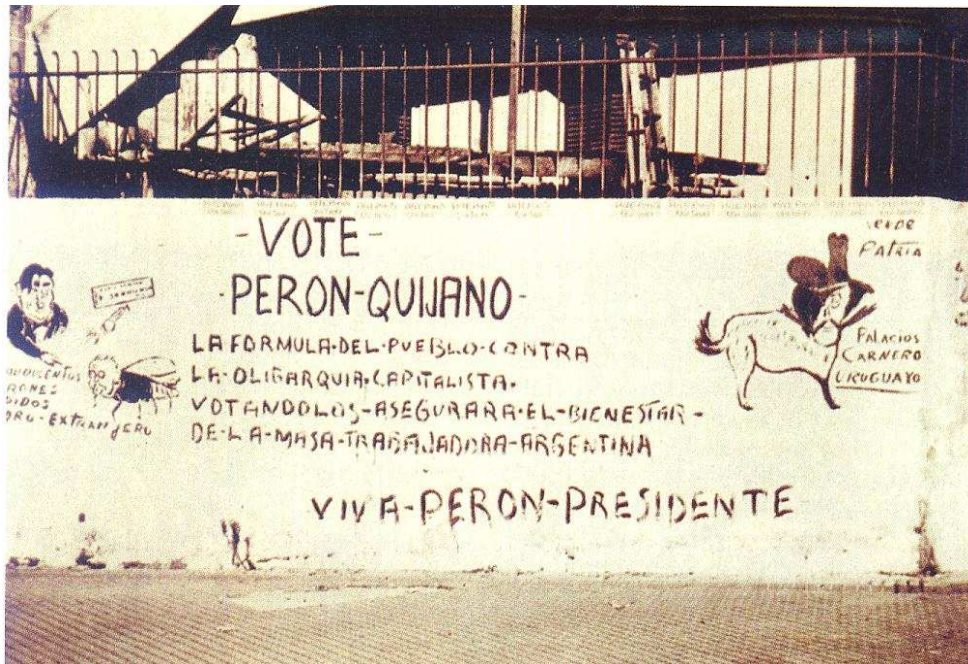 -VOTE-
-PERON-QUIJANO-
LA FORMULA-DEL-PUEBLO-CONTRA
LA-OLIGARQUIA-CAPITALISTA.
VOTANDOLOS-ASEGURARA-EL-BIENESTAR-
DE-LA-MASA-TRABAJADORA-ARGENTINA
VIVA-PERON-PRESIDENTE
ORO-EXTRANJERO
VENDE
PATRIA
PALACIOS
CARNERO
URUGUAYO